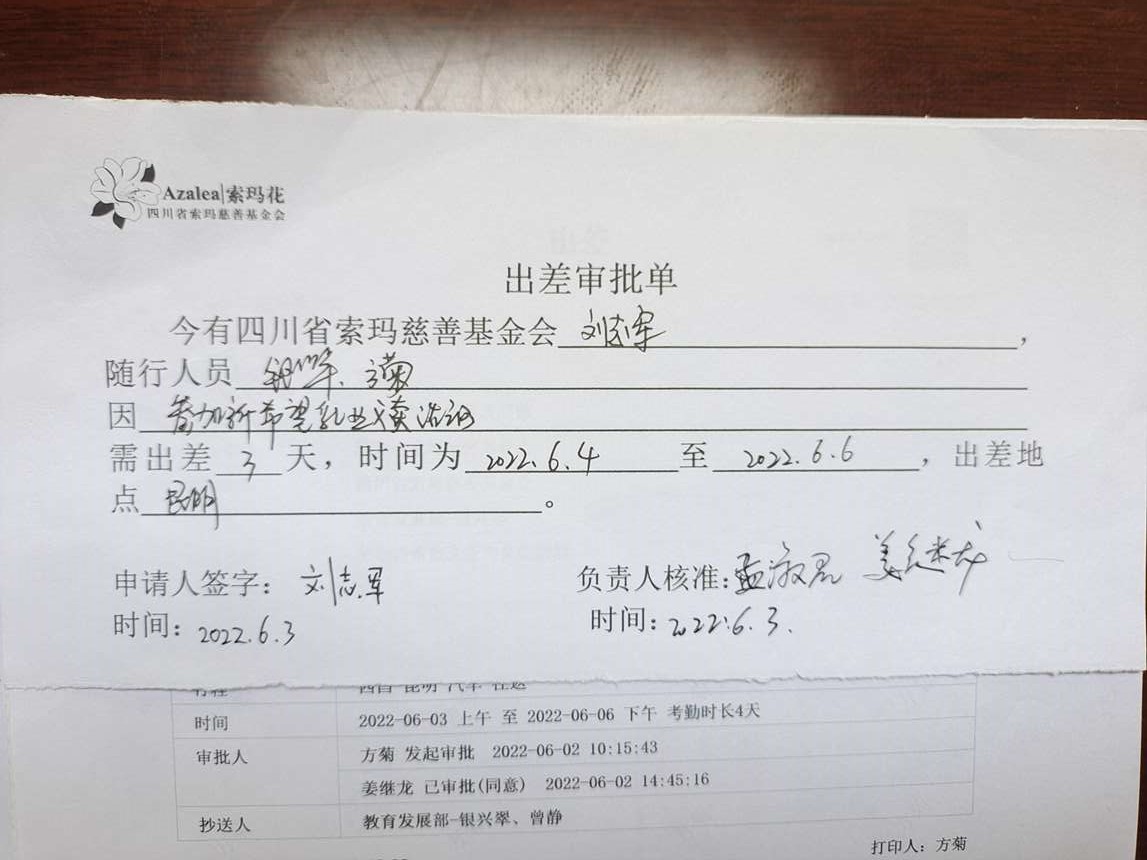 Azalea|索玛花
四川省索玛慈善基金会
出差审批单
今有四川省索玛慈善基金会 刘志军,
随行人员 、方菊
因 参加新希望乳业 活动
需出差 3 天，时间为 2022.6.4 至 2022.6.6 ，出差地
点 昆明 。
申请人签字： 刘志军 负责人核准：孟淑君 姜继龙
时间：2022.6.3 时间：2022.6.3.
行程 西昌 昆明 汽车 往返
时间 2022-06-03 上午 至 2022-06-06 下午 考勤时长4天
审批人 方菊 发起审批 2022-06-02 10:15:43
姜继龙 已审批(同意) 2022-06-02 14:45:16
抄送人 教育发展部-银兴翠、曾静
打印人：方菊